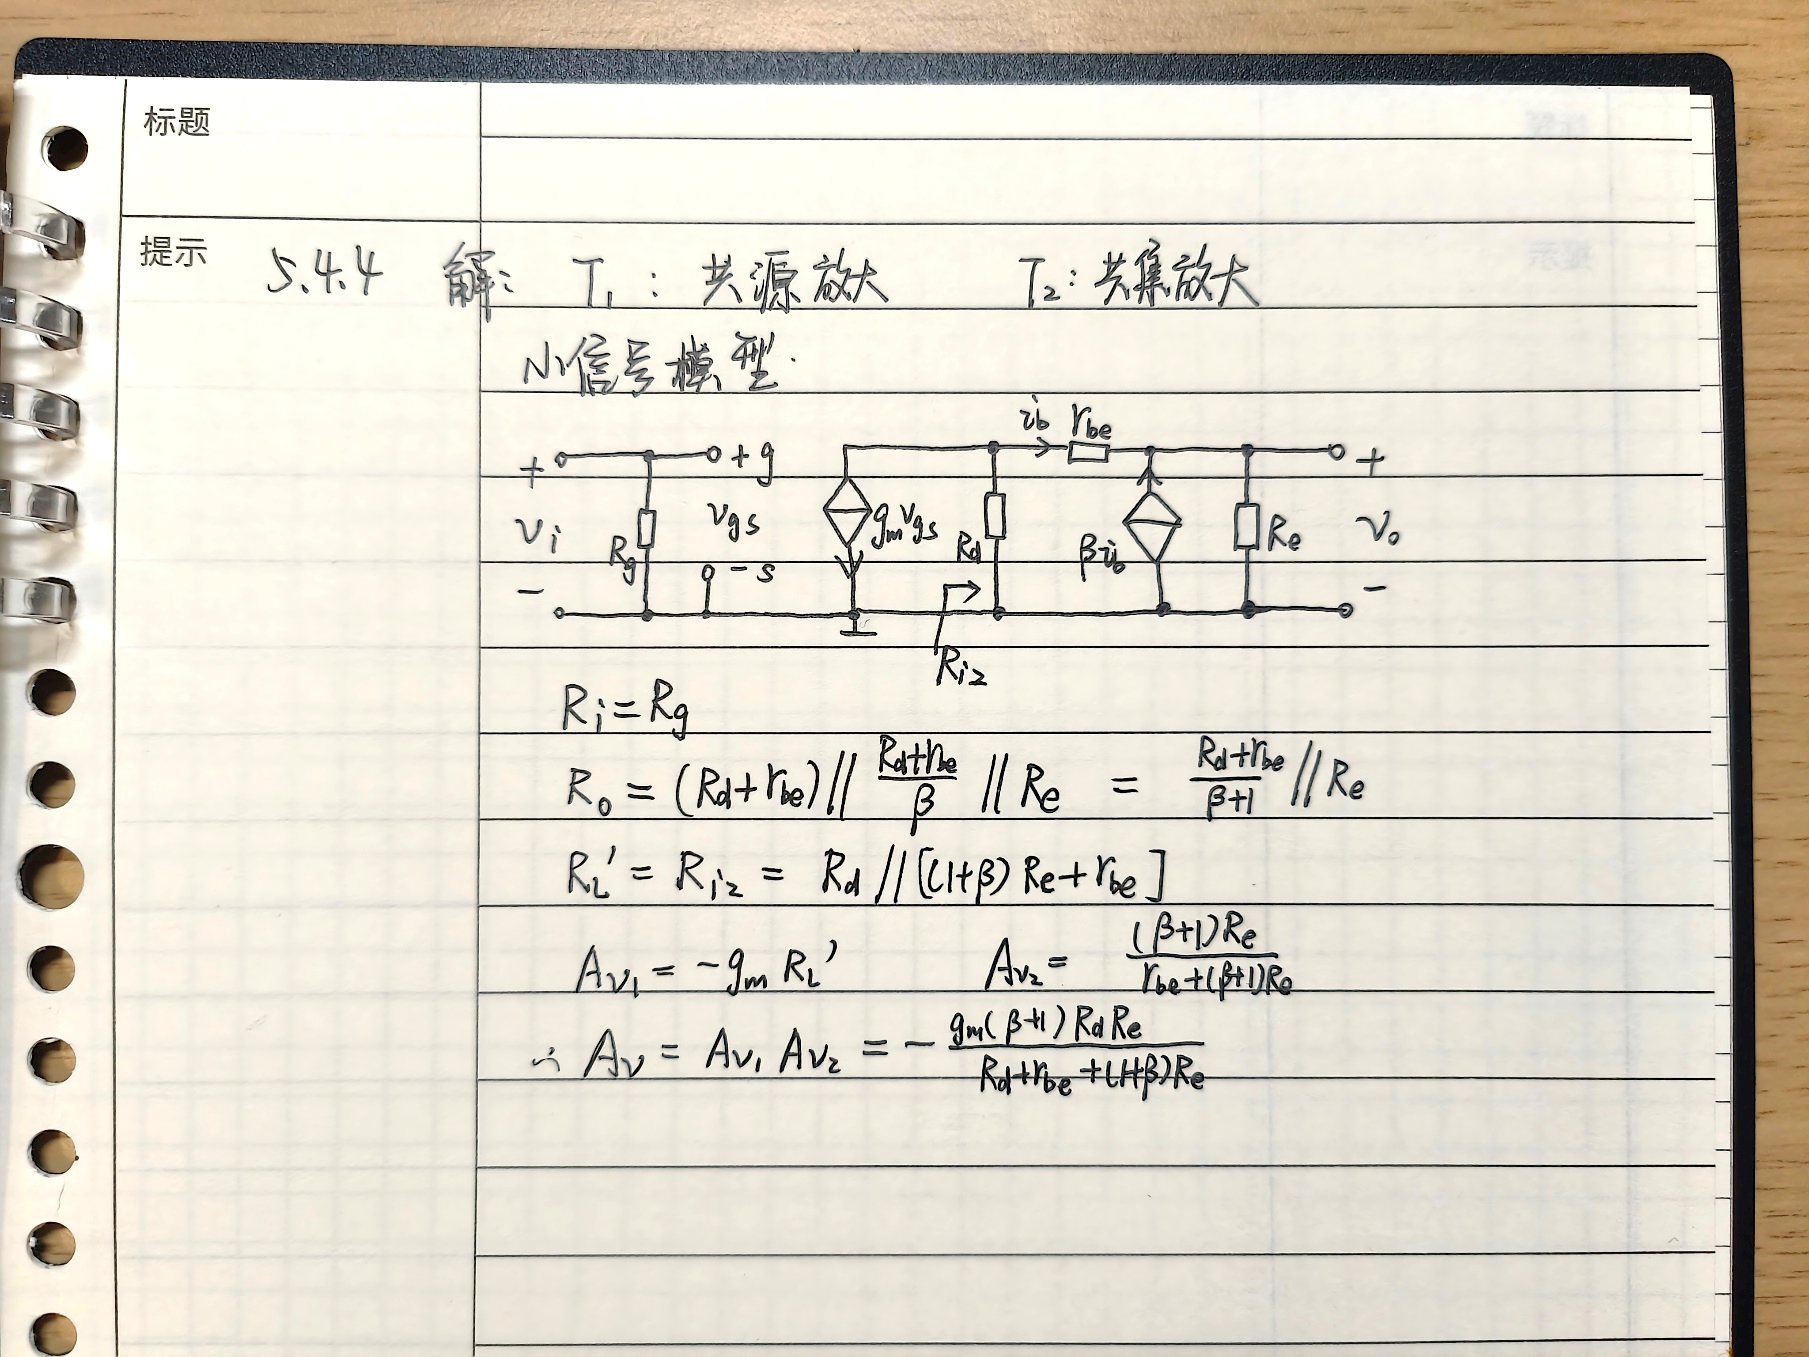 标题
提示 5.4.4 解: T₁: 共源放大 T₂: 共集放大
小信号模型.
i_b r_be
+ + g +
v_i R_g v_gs g_m v_gs R_d βi_b R_e v_o
- - s -
R_i2
R_i = R_g
R_o = (R_d+r_be) // (R_d+r_be)/β // R_e = (R_d+r_be)/(β+1) // R_e
R_L' = R_i2 = R_d // [(1+β) R_e + r_be]
A_v1 = -g_m R_L' A_v2 = (β+1)R_e / (r_be+(β+1)R_e)
∴ A_v = A_v1 A_v2 = - g_m(β+1) R_d R_e / (R_d+r_be+(1+β)R_e)